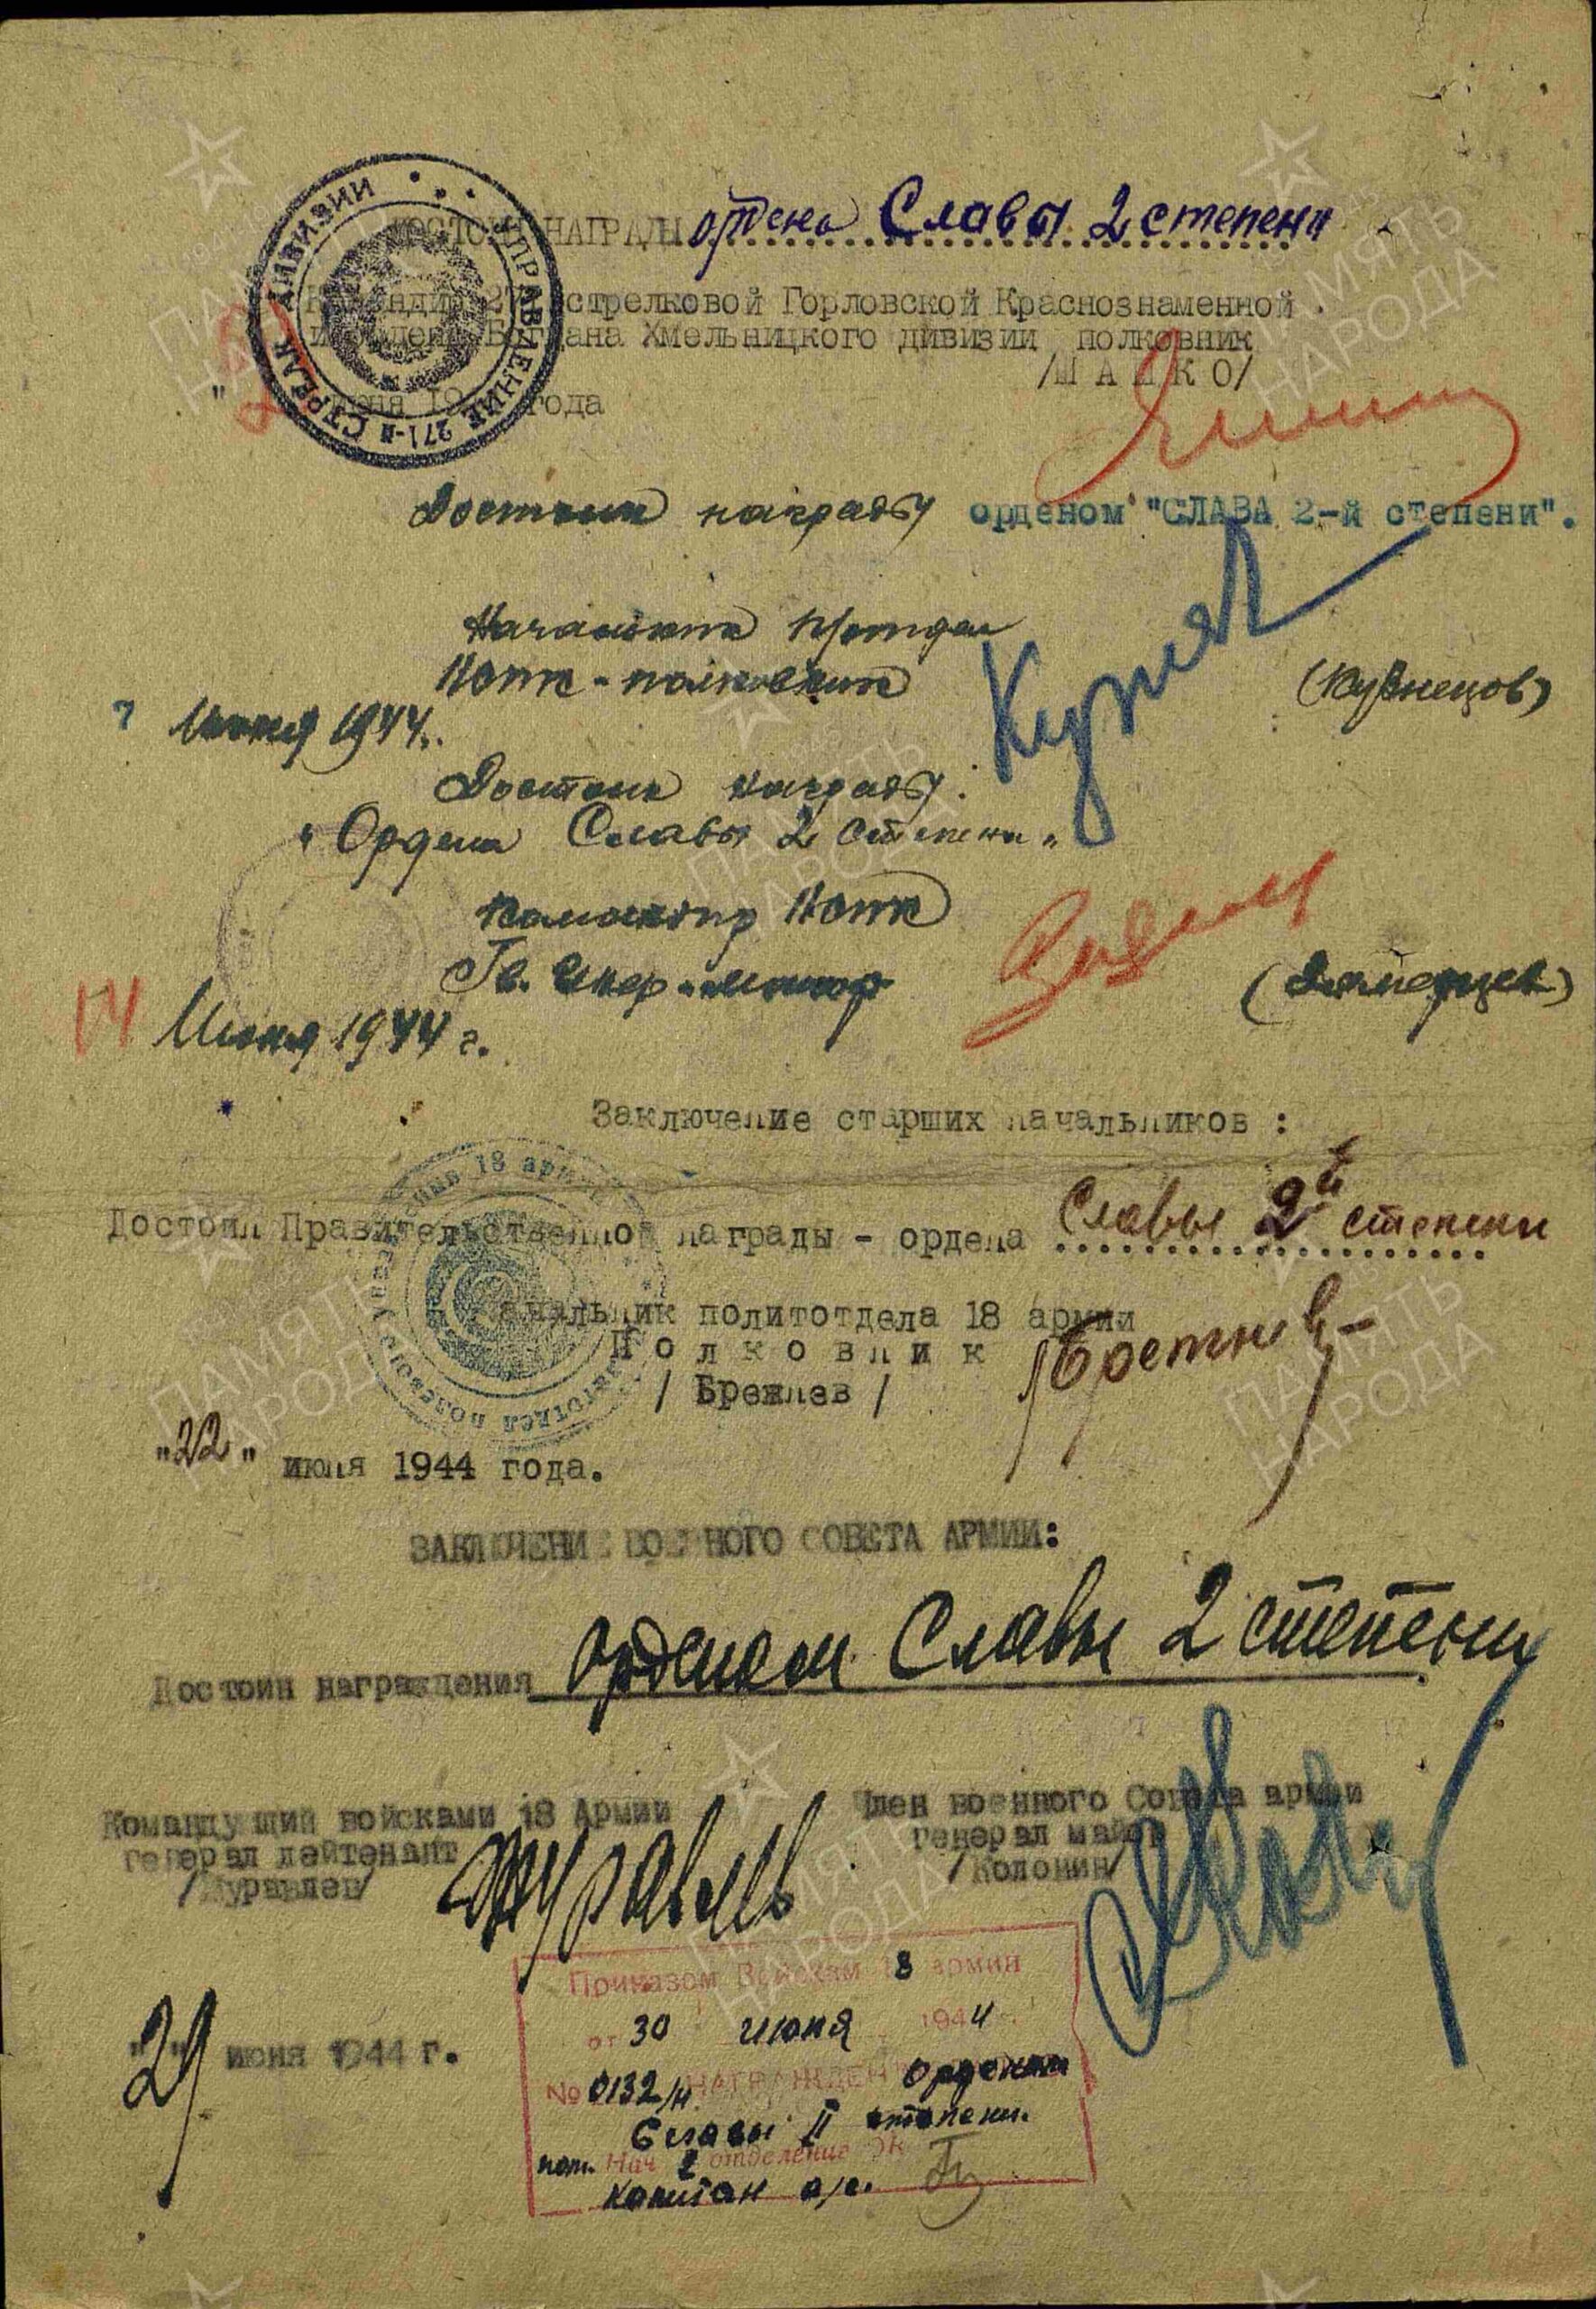 ДОСТОИН НАГРАДЫ ордена Славы 2 степени
Командир 271 стрелковой Горловской Краснознаменной
и ордена Богдана Хмельницкого дивизии полковник
/Ш А П К О/
" июня 19 года
УПРАВЛЕНИЕ 271-й СТРЕЛК ДИВИЗИИ
Достоин награды орденом "СЛАВА 2-й степени".
Начальник
полковник
(Кузнецов)
7 Июня 1944г.
Достоин награды:
"Ордена Славы 2 степени"
Командир
Гв. майор
14 Июня 1944 г.
Заключение старших начальников :
Достоин Правительственной награды - ордена Славы 2й степени
Начальник политотдела 18 армии
П о л к о в н и к
/ Брежнев /
"22" июня 1944 года.
ЗАКЛЮЧЕНИЕ ВОЕННОГО СОВЕТА АРМИИ:
Достоин награждения орденом Славы 2 степени
Командующий войсками 18 Армии
генерал лейтенант
/Журавлев/
Член военного Совета армии
генерал майор
/Колонин/
"29" июня 1944 г.
Приказом Войскам 18 армии
от 30 июня 1944 г.
№ 0132/н НАГРАЖДЕН Орденом
Славы II степени.
пом. Нач 2 отделение ОК
капитан а/с.
ПАМЯТЬ
НАРОДА
ПАМЯТЬ
НАРОДА
ПАМЯТЬ
НАРОДА
ПАМЯТЬ
НАРОДА
ПАМЯТЬ
НАРОДА
ПАМЯТЬ
НАРОДА